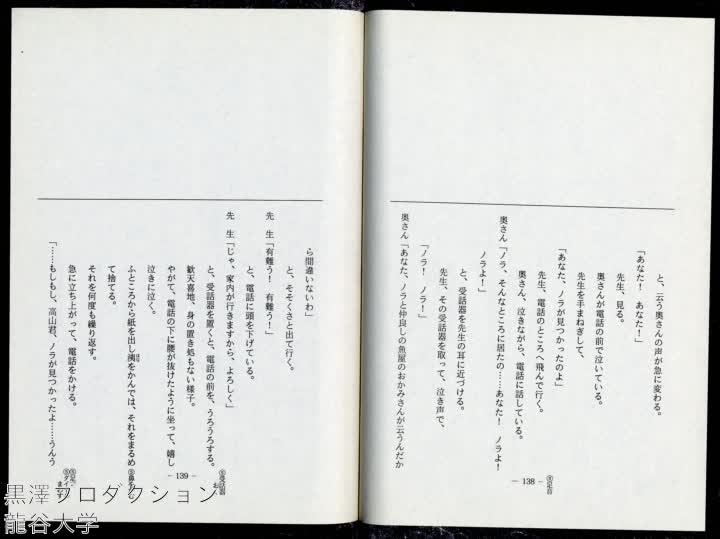 と、云う奥さんの声が急に変わる。
「あなた! あなた!」
先生、見る。
奥さんが電話の前で泣いている。
先生を手まねぎして、
「あなた、ノラが見つかったのよ」
先生、電話のところへ飛んで行く。
奥さん、泣きながら、電話に話している。
奥さん「ノラ、そんなところに居たの……あなた! ノラよ!
ノラよ!」
と、受話器を先生の耳に近づける。
先生、その受話器を取って、泣き声で、
「ノラ! ノラ!」
奥さん「あなた、ノラと仲良しの魚屋のおかみさんが云うんだか
- 138 -
Ⓢ足音
ら間違いないわ」
と、そそくさと出て行く。
先 生「有難う! 有難う!」
と、電話に頭を下げている。
先 生「じゃ、家内が行きますから、よろしく」
と、受話器を置くと、電話の前を、うろうろする。
歓天喜地、身の置き処もない様子。
やがて、電話の下に腰が抜けたように坐って、嬉し
泣きに泣く。
ふところから紙を出し洟をかんでは、それをまるめ
て捨てる。
それを何度も繰り返す。
急に立ち上がって、電話をかける。
「……もしもし、高山君、ノラが見つかったよ……うんう
- 139 -
Ⓢ受話器
Ⓢ鼻をかむ
Ⓢ足・
黒澤プロダクション
龍谷大学